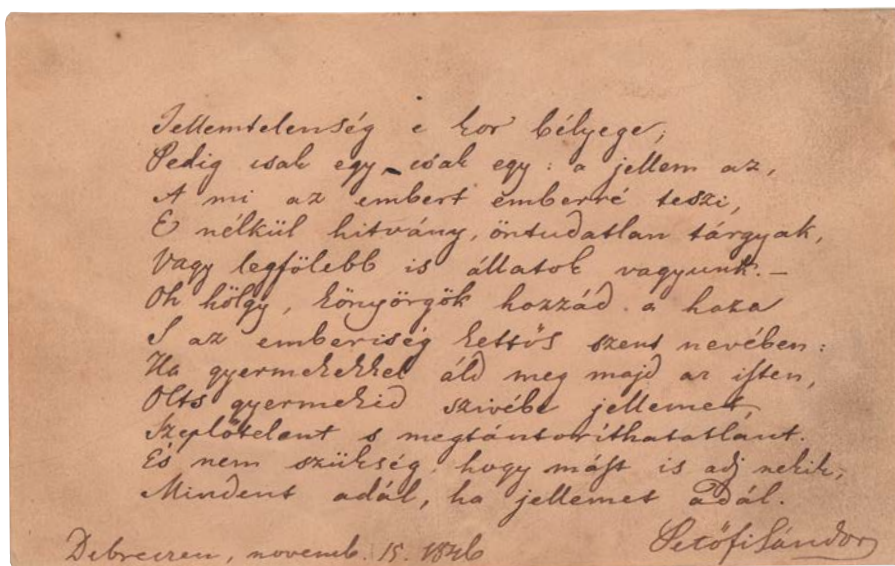 Jellemtelenség e kor bélyege;
Pedig csak egy, csak egy: a jellem az,
A mi az embert emberré teszi,
E nélkül hitvány, öntudatlan tárgyak,
Vagy legfölebb is állatok vagyunk. –
Oh hölgy, könyörgök hozzád a haza
S az emberiség kettős szent nevében:
Ha gyermekekkel áld meg majd az isten,
Olts gyermekid szivébe jellemet,
Szeplőtelent s megtántoríthatatlant.
És nem szükség, hogy mást is adj nekik;
Mindent adál, ha jellemet adál.
Debreczen, novemb. 15. 1846 Petőfi Sándor